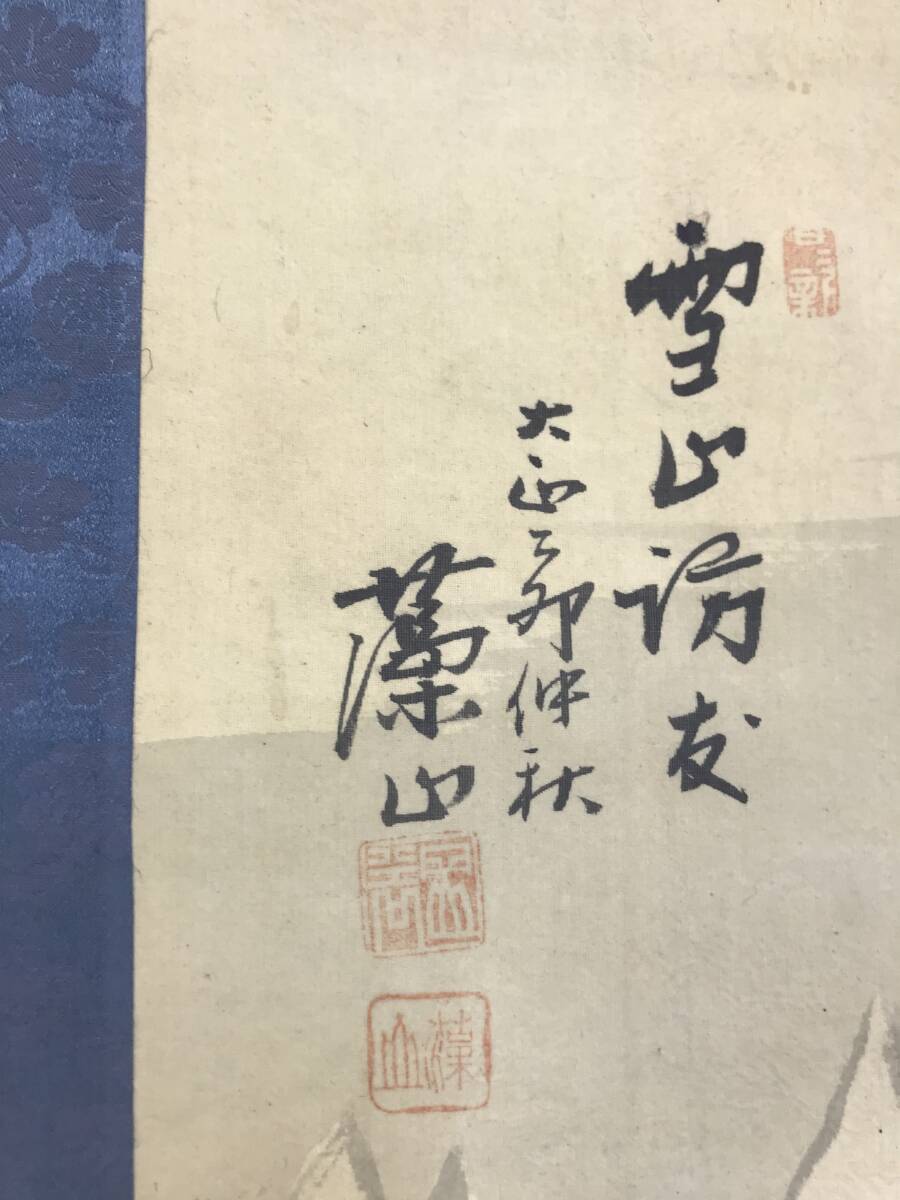 雪山訪友
大正乙卯仲秋
藻山
藻山